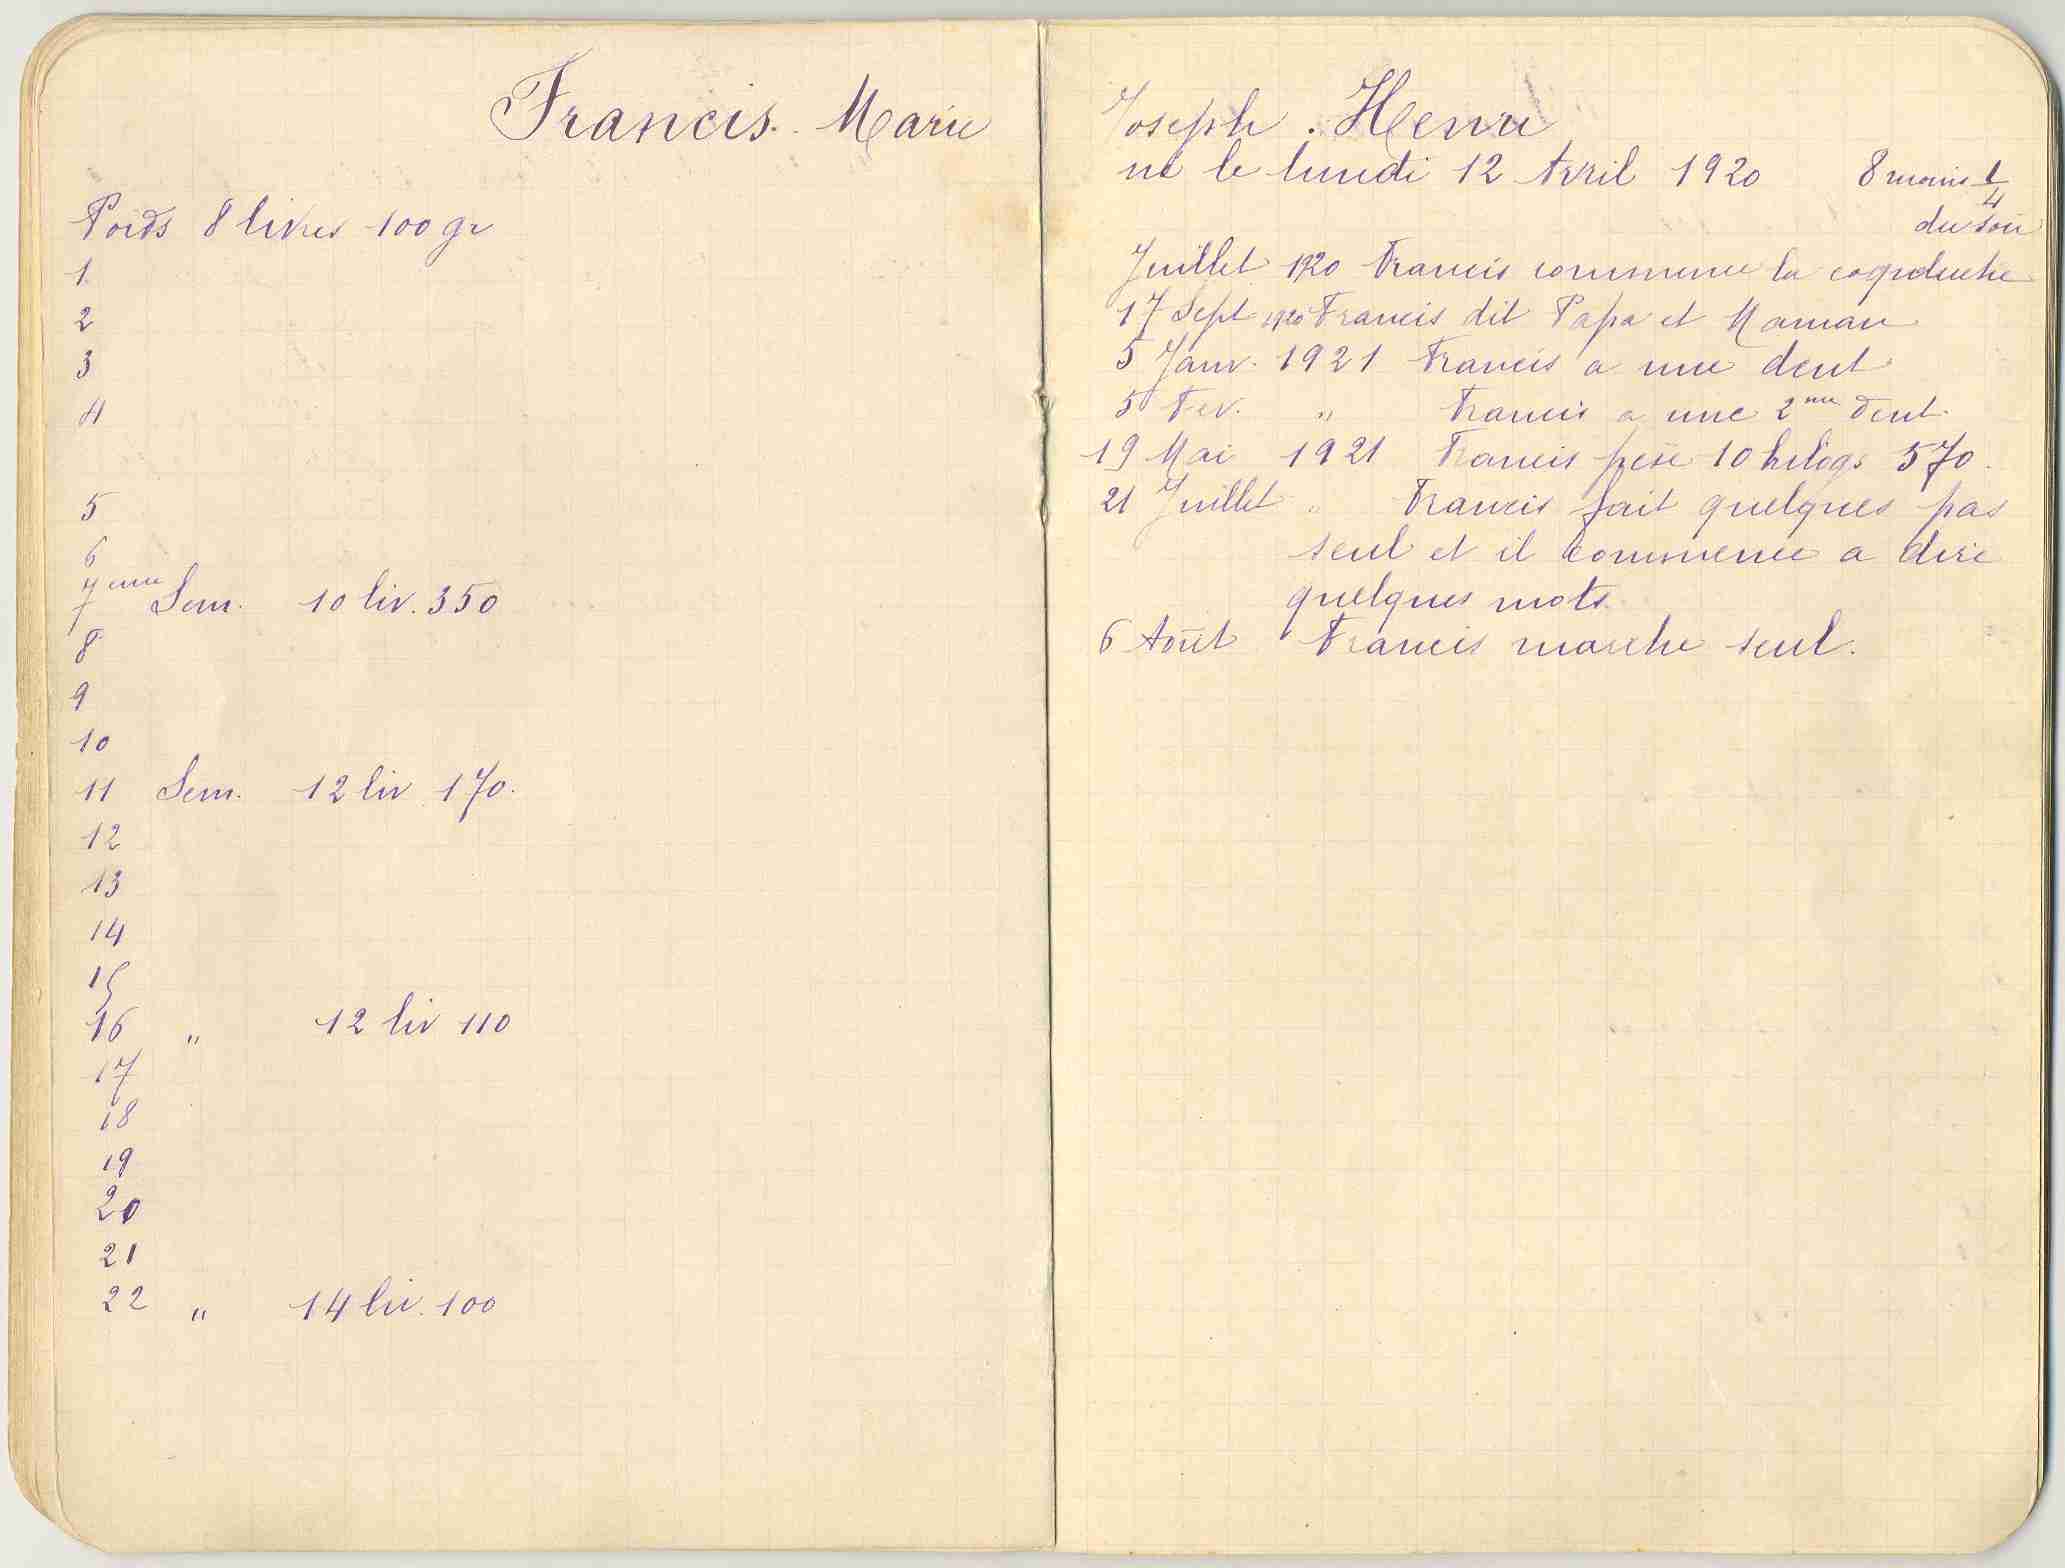 Francis. Marie
Poids 8 livres 100 gr
1
2
3
4
5
6
7eme Sem. 10 liv. 350
8
9
10
11 Sem. 12 liv 170.
12
13
14
15
16 " 12 liv 110
17
18
19
20
21
22 " 14 liv. 100
Joseph. Henri
né le lundi 12 Avril 1920 8 moins 1/4
du soir
Juillet 1920 Francis commence la coqueluche
17 Sept 1920 Francis dit Papa et Maman
5 Janv. 1921 Francis a une dent
5 Fev. " Francis a une 2me dent.
19 Mai 1921 Francis pese 10 kilogs 570.
21 Juillet " Francis fait quelques pas
seul et il commence a dire
quelques mots.
6 Août Francis marche seul.